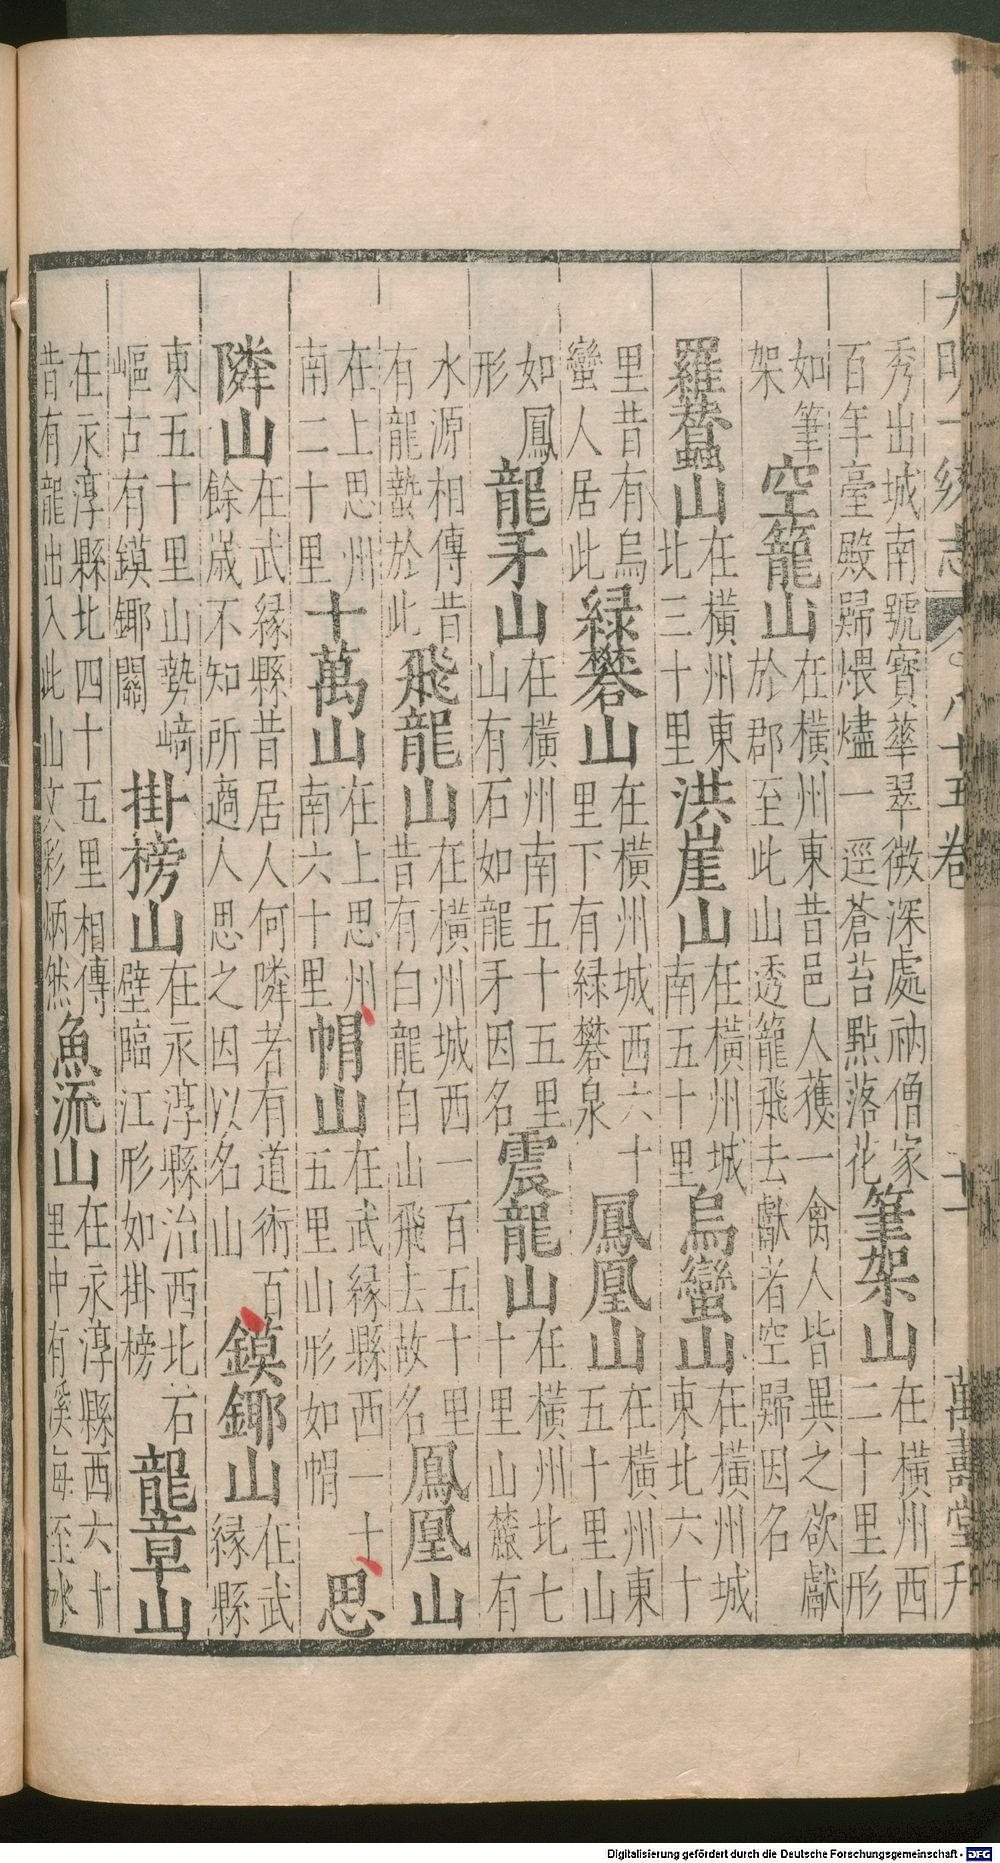 大明一統志 八十五卷 十一 萬壽堂刋
秀出城南號寶華翠微深處衲僧家
百年臺殿歸煨燼一逕蒼苔點落花
筆架山
在橫州西
二十里形
如筆
架
空籠山
在橫州東昔邑人獲一禽人皆異之欲獻
於郡至此山透籠飛去獻者空歸因名
羅蠶山
在橫州東
北三十里
洪崖山
在橫州城
南五十里
烏蠻山
在橫州城
東北六十
里昔有烏
蠻人居此
緑礬山
在橫州城西六十
里下有緑礬泉
鳳凰山
在橫州東
五十里山
如鳳
形
龍矛山
在橫州南五十五里
山有石如龍矛因名
震龍山
在橫州北七
十里山麓有
水源相傳昔
有龍蟄於此
飛龍山
在橫州城西一百五十里
昔有白龍自山飛去故名
鳳凰山
在上思州
南二十里
十萬山
在上思州
南六十里
帽山
在武緣縣西一十
五里山形如帽
思
隣山
在武緣縣昔居人何隣者有道術百
餘歲不知所適人思之因以名山
鏌鎁山
在武
緣縣
東五十里山勢﨑
嶇古有鏌鎁關
掛榜山
在永淳縣治西北石
壁臨江形如掛榜
龍章山
在永淳縣北四十五里相傳
昔有龍出入此山文彩炳然
魚流山
在永淳縣西六十
里中有溪每至水
Digitalisierung gefördert durch die Deutsche Forschungsgemeinschaft - DFG